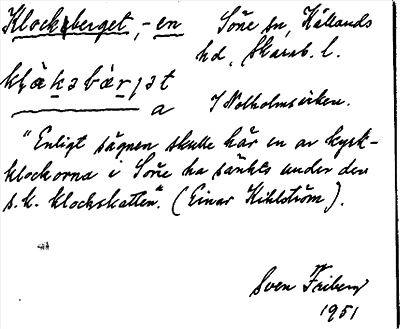 Klockberget, -en Söne sn, Kållands
hd, Skarab. l.
a I Nolholmsviken.
"Enligt sägnen skulle här en av kyrk-
klockorna i Söne ha sänkts under den
s.k. klockskatten". (Einar Kihlström).
Sven Friberg
1951